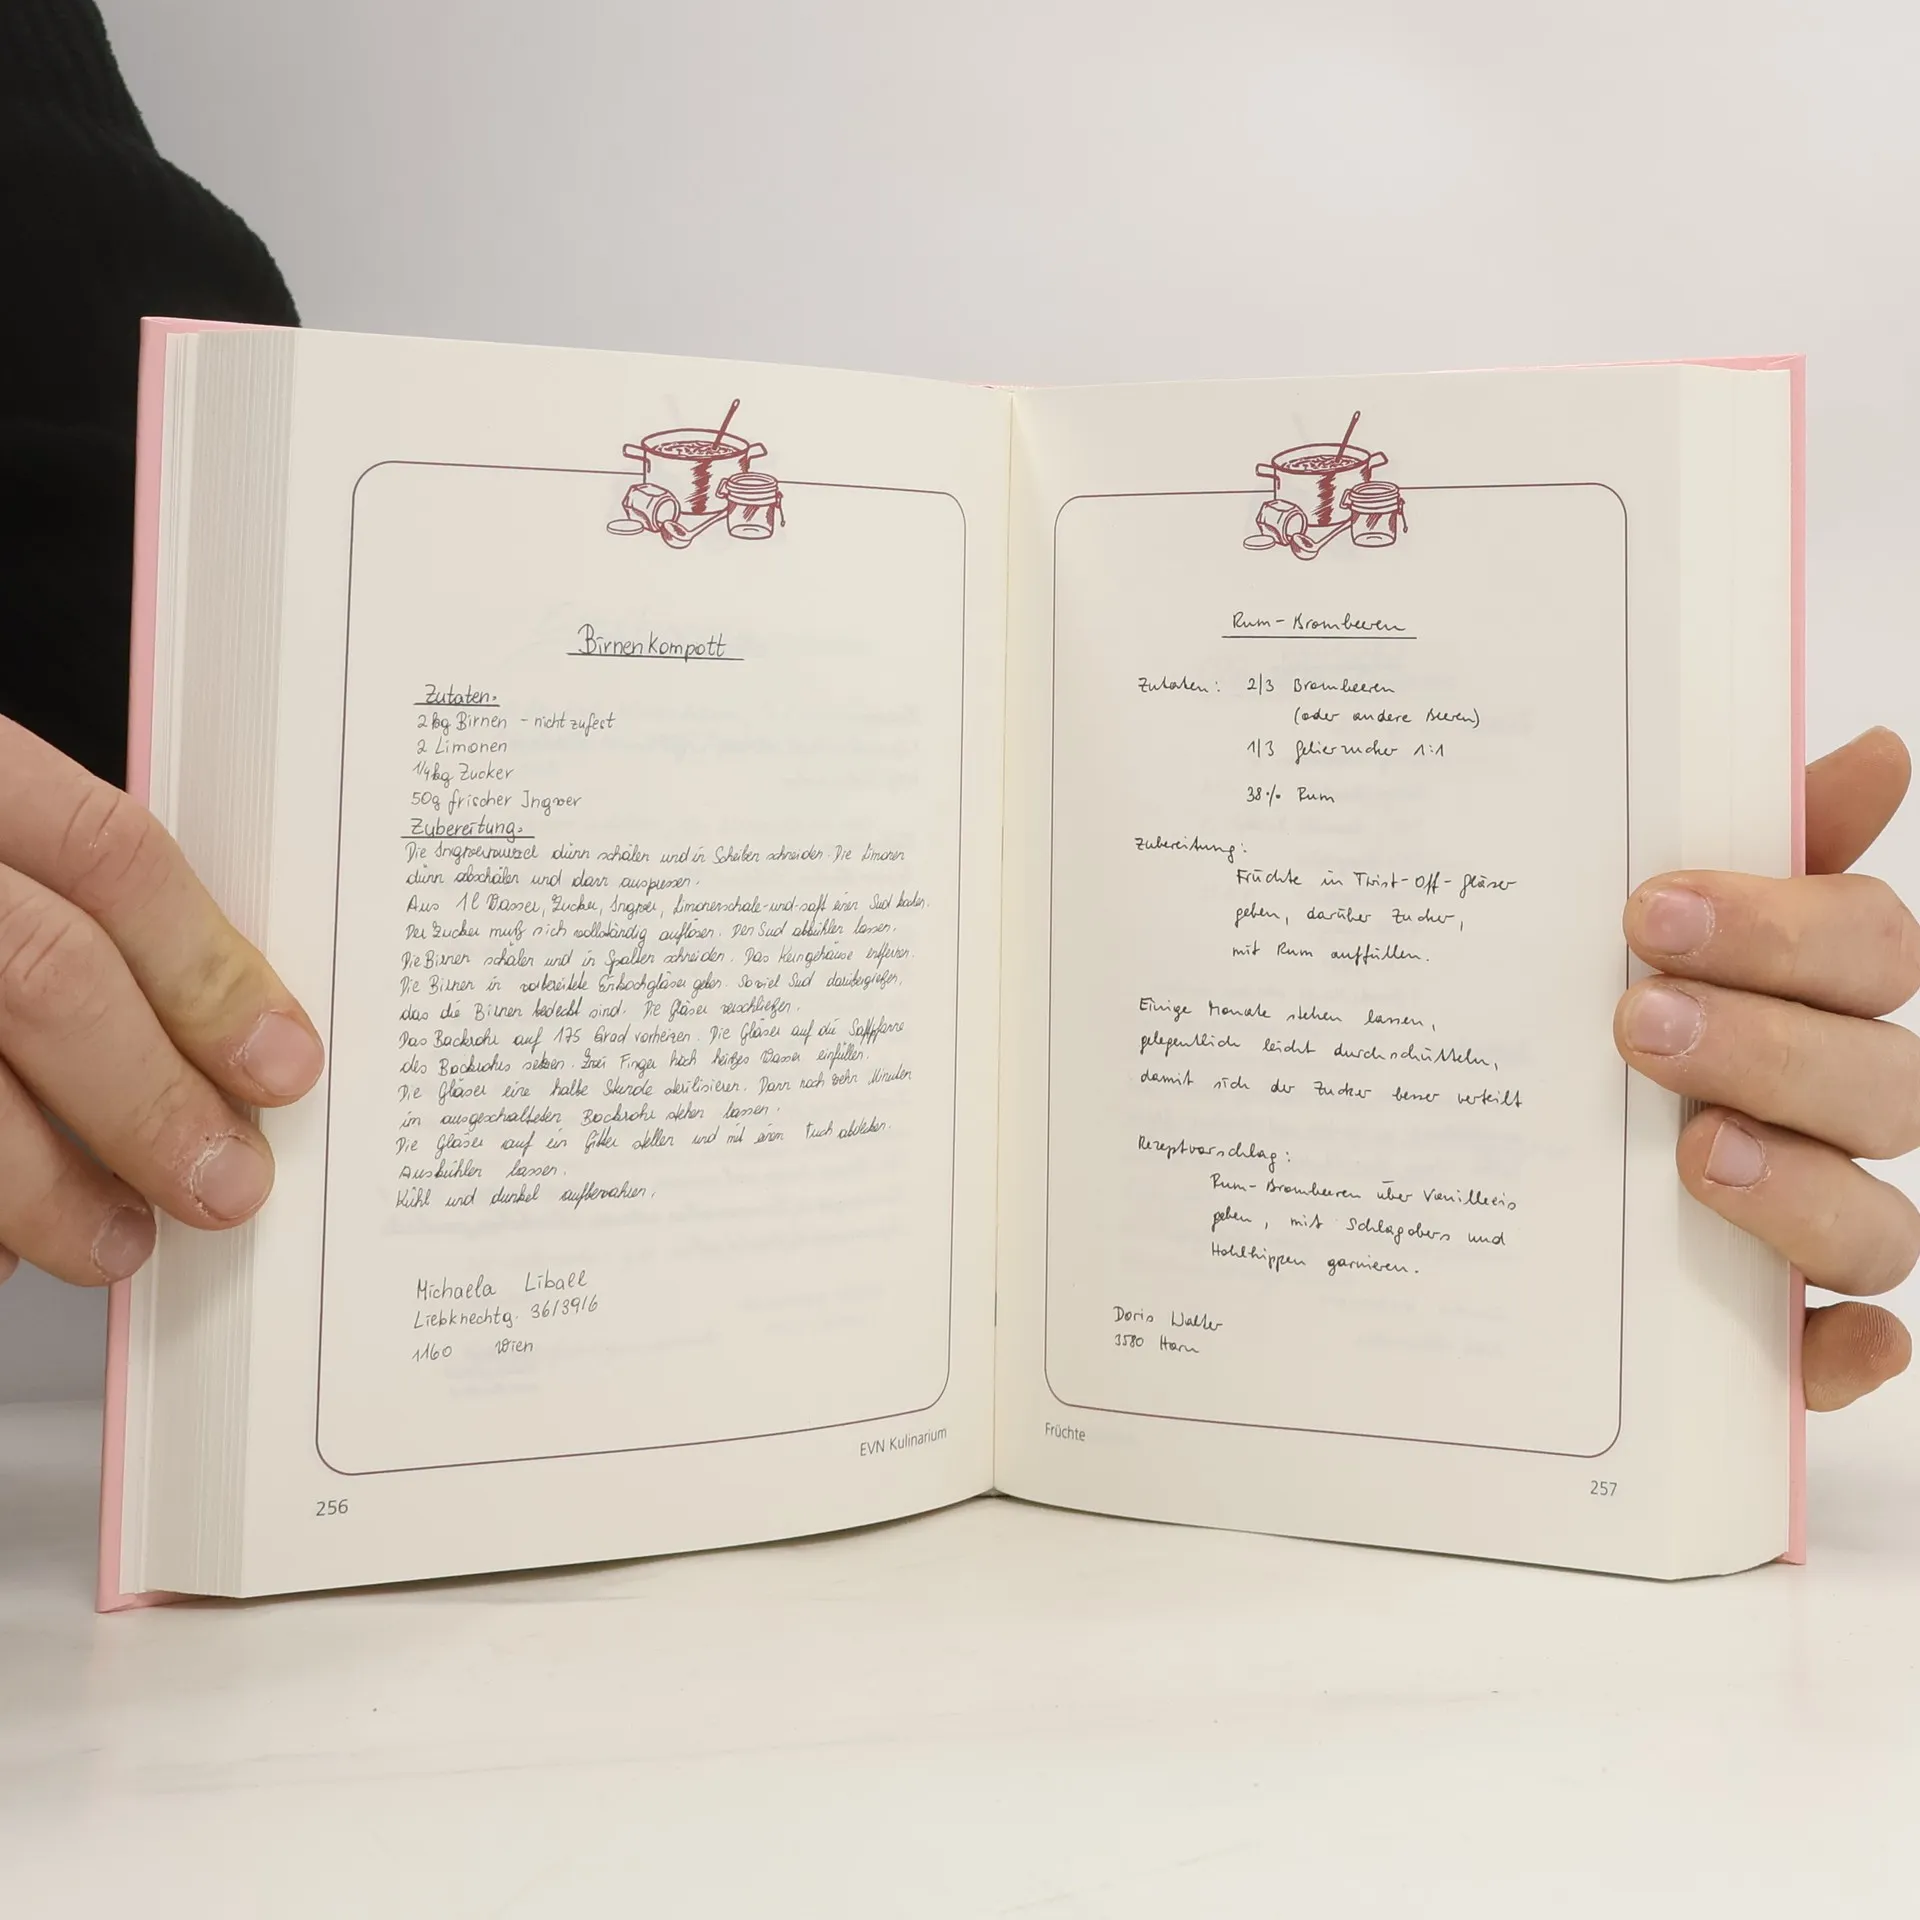 Birnenkompott
Zutaten:
2kg Birnen - nicht zu fest
2 Limonen
1/4kg Zucker
50g frischer Ingwer
Zubereitung:
Die Ingwerwurzel dünn schälen und in Scheiben schneiden. Die Limonen
dünn abschälen und dann auspressen.
Aus 1l Wasser, Zucker, Ingwer, Limonenschale-und-saft einen Sud kochen.
Der Zucker muß sich vollständig auflösen. Den Sud abkühlen lassen.
Die Birnen schälen und in Spalten schneiden. Das Kerngehäuse entfernen.
Die Birnen in vorbereitete Einkochgläser geben. Soviel Sud darübergießen,
das die Birnen bedeckt sind. Die Gläser verschließen.
Das Backrohr auf 175 Grad vorheizen. Die Gläser auf die Saftpfanne
des Backrohrs setzen. Zwei Finger hoch heißes Wasser einfüllen.
Die Gläser eine halbe Stunde sterilisieren. Dann noch zehn Minuten
im ausgeschalteten Backrohr stehen lassen.
Die Gläser auf ein Gitter stellen und mit einem Tuch abdecken.
Auskühlen lassen.
Kühl und dunkel aufbewahren.
Michaela Liball
Liebknechtg. 36/39/6
1160 Wien
EVN Kulinarium
256
Rum-Brombeeren
Zutaten: 2/3 Brombeeren
(oder andere Beeren)
1/3 Gelierzucker 1:1
38% Rum
Zubereitung:
Früchte in Twist-Off-Gläser
geben, darüber Zucker,
mit Rum auffüllen.
Einige Monate stehen lassen,
gelegentlich leicht durchschütteln,
damit sich der Zucker besser verteilt
Rezeptvorschlag:
Rum-Brombeeren über Vanilleeis
geben, mit Schlagobers und
Hohlhippen garnieren.
Doris Walter
3580 Horn
Früchte
257